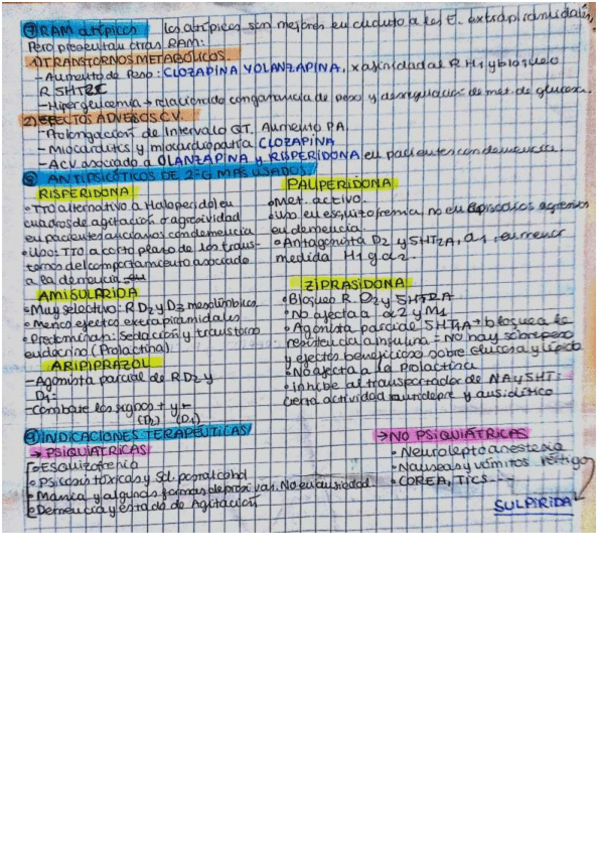 ⑦ RAM atípicos los atípicos son mejores en cuanto a los E. extrapiramidales,
Pero presentan otras RAM:
1) TRANSTORNOS METABOLICOS.
- Aumento de Peso: CLOZAPINA Y OLANZAPINA, x afinidad al R H1 y bloqueo
R 5HT2C
- Hiperglucemia → relacionado con ganancia de peso y desregulación de met. de glucosa.
2) EFECTOS ADVERSOS CV.
- Prolongación de Intervalo QT. Aumento PA.
- Miocarditis y miocardiopatía CLOZAPINA
- ACV asociado a OLANZAPINA y RISPERIDONA en pacientes con demencia.
⑧ ANTIPSICÓTICOS DE 2ªG MAS USADOS:
RISPERIDONA
• TTO alternativo a Haloperidol en
cuadros de agitación o agresividad
en pacientes ancianos con demencia
• Uso: TTO a corto plazo de los trans-
tornos del comportamiento asociado
a la demencia
PALIPERIDONA
• Met. activo.
• Uso en esquizofrenia, no en episodios agresivos
en demencia.
• Antagonista D2 y 5HT2A, α1, en menor
medida H1 y α2.
AMISULPRIDA
• Muy selectivo: R D2 y D3 mesolímbico.
• Menos efectos extrapiramidales
• Predominan: Sedación y transtorno
endocrino (Prolactina)
ARIPIPRAZOL
- Agonista parcial de R D2 y
D1:
- Combate los signos + y -
(D2) (D1)
ZIPRASIDONA
• Bloqueo R. D2 y 5HT2A
• No afecta a α2 y M1
• Agonista parcial 5HT1A → bloquea la
resistencia a insulina = No hay sobrepeso
y efectos beneficioso sobre Glucosa y Lípido
• No afecta a la Prolactina
• Inhibe al transportador de NA y 5HT:
cierta actividad antidepre y ansiolítico
⑨ INDICACIONES TERAPEUTICAS
→ PSIQUIATRICAS
• Esquizofrenia
• Psicosis tóxicas y Sd. post alcohol
• Manía y algunas formas depresivas. No en ansiedad.
• Demencia y estado de Agitación
→ NO PSIQUIÁTRICAS
• Neuroleptoanestesia
• Nauseas y vómitos vértigo
• COREA, TICS...
SULPIRIDA